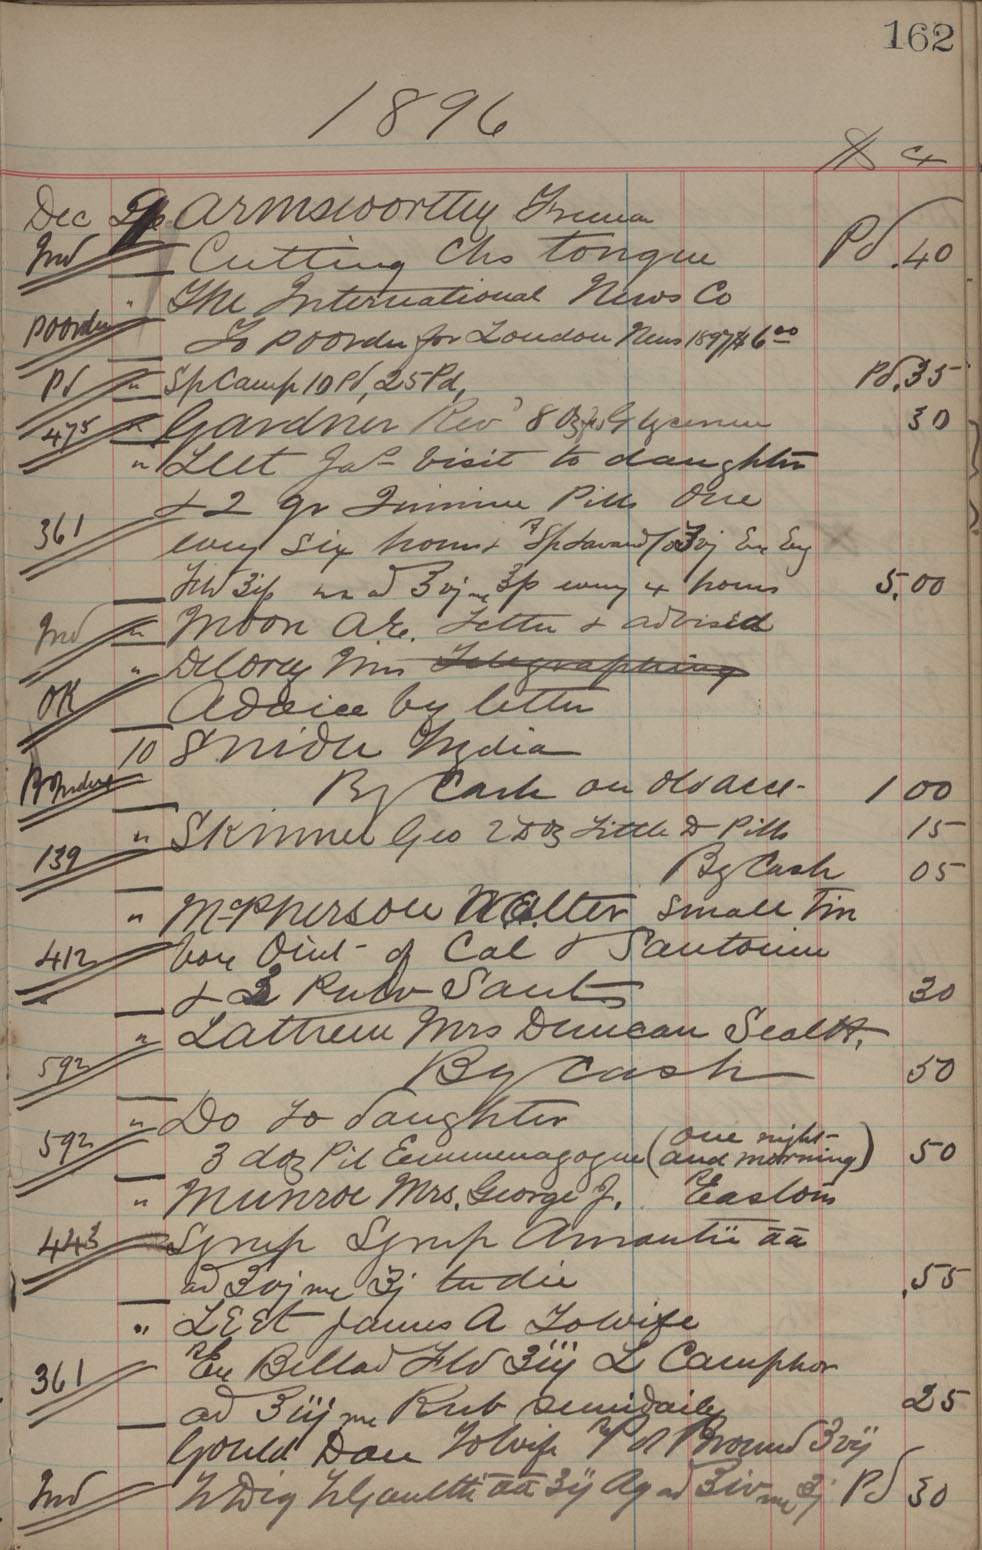 162
1896
$ ct
Dec 9 Armsworthy Freeman
Ind Cutting Chs tongue Pd .40
" The International News Co
POorder To POorder for London News 1897 $6 00
Pd " Sp Camp 10 Pd, 25 Pd, Pd .35
475 " Gardner Rev 8 Oz Glycerine 30
" LEEt Jas visit to daughter
& 2 gr Quinine Pills One
361 every six hours & Sp Lavand Co Ex Erg
Fld ad ʒvj ʒp every 4 hours 5.00
Ind " Moon A.E. Letter & advised
" Delorey Mrs Telegraphing
OK Advice by letter
10 Snider Lydia
By Cash on old acct- 1 00
" Skinner Geo 2 Doz Little D Pills 15
139 By Cash 05
" McPherson Walter Small Tin
412 box Oint- of Cal & Santonin
& 3 Pulv Sant 30
" Lattren Mrs Duncan Seal H.
592 By Cash 50
" Do to daughter
592 3 doz Pil Emmenagogue (one night- and morning) 50
" Munroe Mrs. George J. Eastom
443 Syrup Syrup Aurantii āā
ad ʒvj ʒj ter die .55
" LEEt James A To wife
361 Ex Bellad Fld ʒiij L Camphor
ad ʒiij Rub semidaily 25
Gould Dan To wife P A Bromid ʒvij
Ind Tr Dig Tr Gaulth āā ʒij Aq ad ʒiv ʒj Pd 30